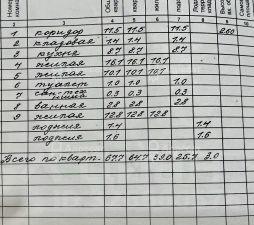 3 4 5 6 7 8 9 10
1 коридор 11.5 11.5 11.5 2.60
2 кладовая 1.4 1.4 1.4
3 кухня 8.7 8.7 8.7
4 жилая 16.1 16.1 16.1
5 жилая 10.1 10.1 10.1
6 туалет 1.0 1.0 1.0
7 0.3 0.3 0.3
8 ванная 2.8 2.8 2.8
9 жилая 12.8 12.8 12.8
лоджия 1.4 1.4
лоджия 1.6 1.6
Всего по кварт. 67.7 64.7 39.0 25.7 3.0